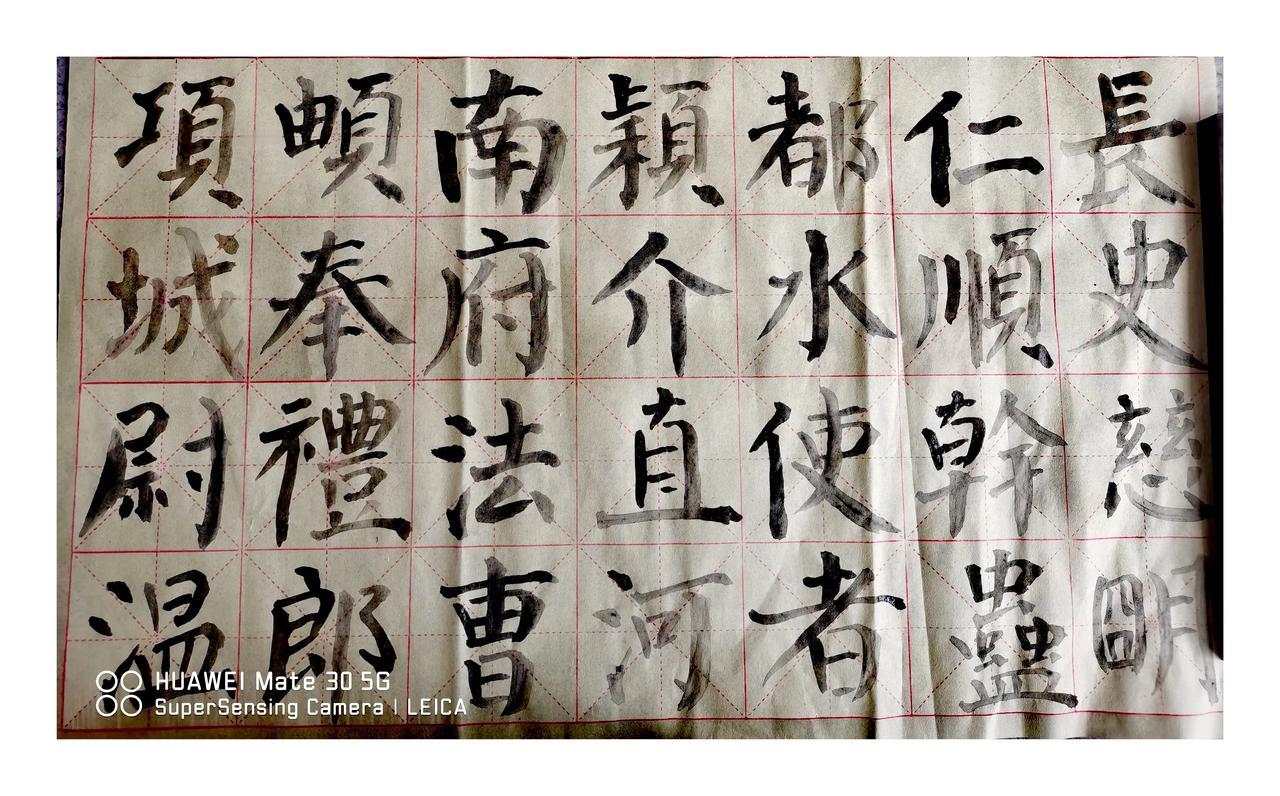 長史慈朙
仁順幹蠱
都水使者
穎介直河
南府法曹
頔奉禮郎
項城尉温
HUAWEI Mate 30 5G
SuperSensing Camera | LEICA